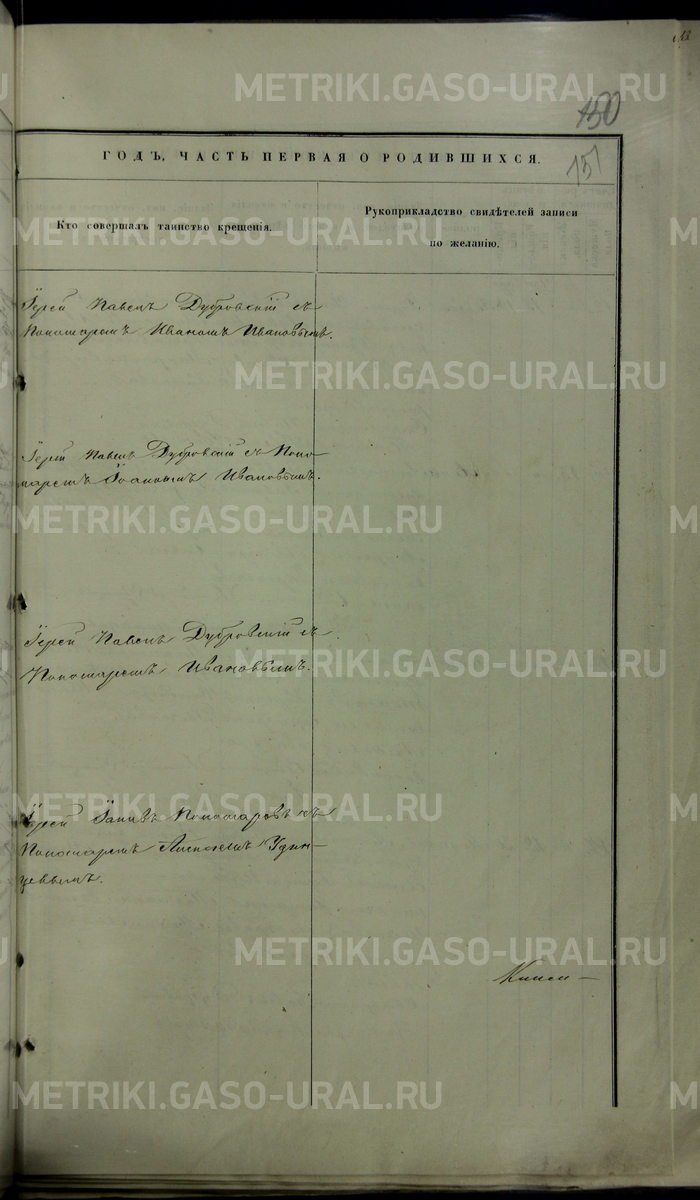 150
151
ГОДЪ, ЧАСТЬ ПЕРВАЯ О РОДИВШИХСЯ.
Кто совершалъ таинство крещенія.
Рукоприкладство свидѣтелей записи
по желанію.
Іерей Павелъ Дубровскій съ
Пономаремъ Иваномъ Ивановымъ.
Іерей Павелъ Дубровскій съ Поно-
маремъ Іоанномъ Ивановымъ.
Іерей Павелъ Дубровскій съ
Пономаремъ Ивановымъ.
Іерей Пономаревъ съ
Пономаремъ Удин-
цевымъ.
METRIKI.GASO-URAL.RU
METRIKI.GASO-URAL.RU
METRIKI.GASO-URAL.RU
METRIKI.GASO-URAL.RU
METRIKI.GASO-URAL.RU
METRIKI.GASO-URAL.RU
METRIKI.GASO-URAL.RU
METRIKI.GASO-URAL.RU